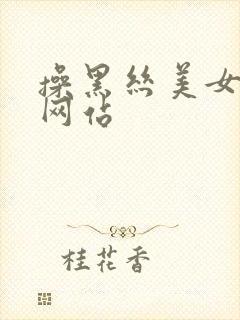 操黑丝美女
网佔
桂花香